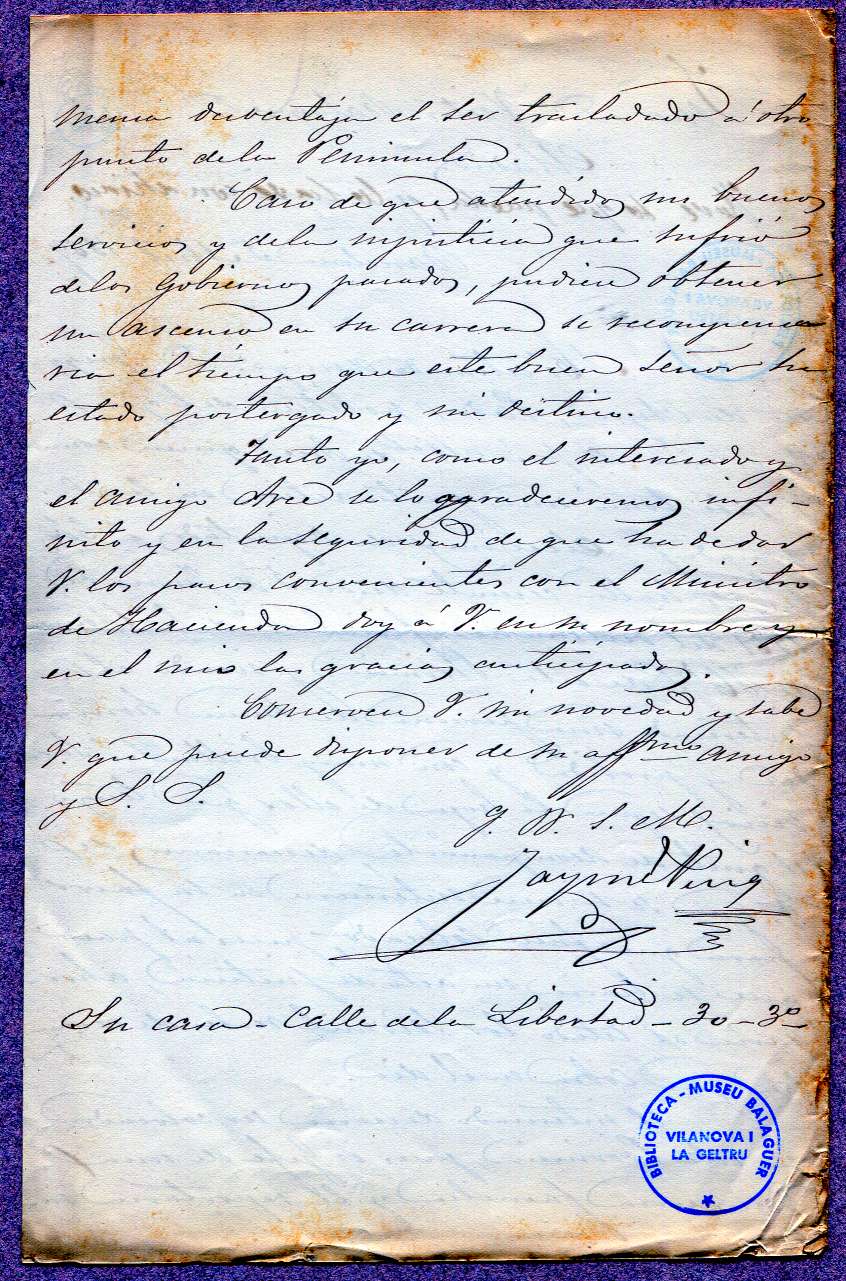 mensa desventaja el ser trasladado a' otro
punto de la Peninsula.
Caso de que atendidos sus buenos
servicios y de la injusticia que sufrió
de los Gobiernos pasados, pudiera obtener
un ascenso en su carrera se recompensa
ria el tiempo que este buen Señor ha
estado postergado y sin destino.
Tanto yo, como el interesado y
el amigo Arce se lo agradeceremos infi-
nito y en la seguridad de que ha de dar
V. los pasos convenientes con el Ministro
de Hacienda doy á V. en su nombre y
en el mio las gracias anticipadas.
Conservese V. sin novedad y sabe
V. que puede disponer de su affmo amigo
y S. S.
q. B. s. M.
Jayme Puig
Su casa - Calle de la Libertad - 30 - 3º
BIBLIOTECA - MUSEU BALAGUER
VILANOVA I
LA GELTRU